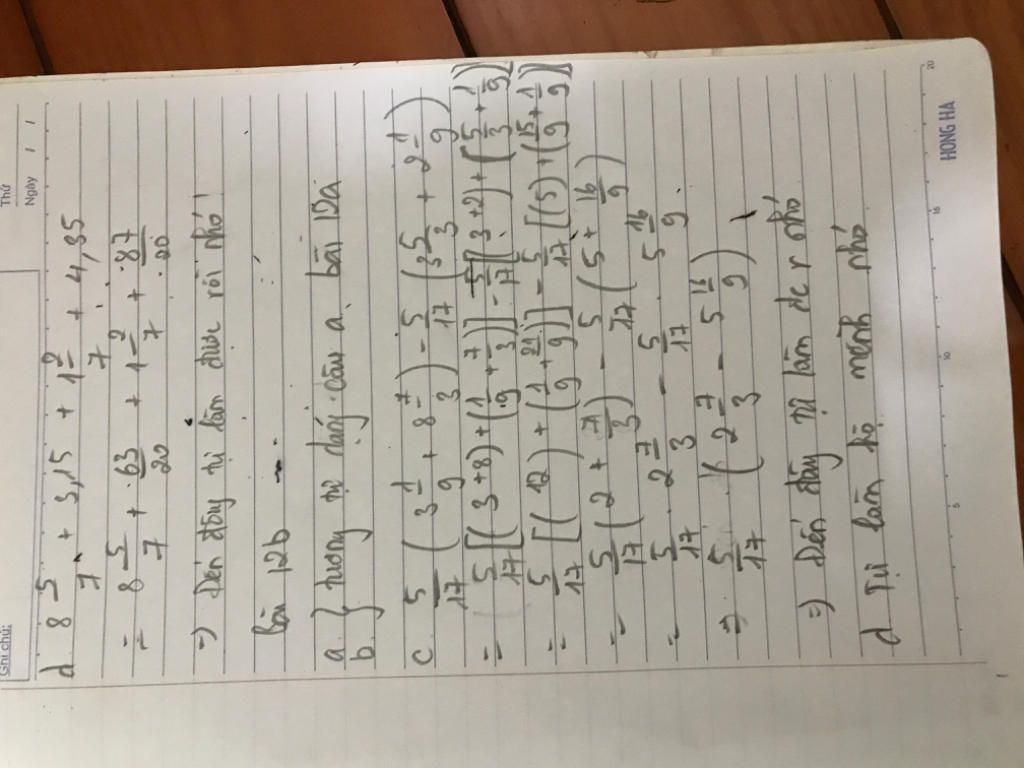 Ghi chú:
Thứ
Ngày / /
d 8 5/7 + 3,15 + 1 2/7 + 4,35
= 8 5/7 + 63/20 + 1 2/7 + 87/20
=) Đến đây tự làm được rồi nhó!
Bài 12b
a. } tương tự dạng câu a bài 12a
b.
c. 5/17 (3 1/9 + 8 7/3) - 5/17 (3 5/3 + 2 1/9)
= 5/17 [(3+8) + (1/9 + 7/3)] - 5/17 [(3+2) + (5/3 + 1/9)]
= 5/17 [(12) + (1/9 + 21/9)] - 5/17 [(5) + (15/9 + 1/9)]
= 5/17 (2 + 7/3) - 5/17 (5 + 16/9)
= 5/17 . 2 7/3 - 5/17 . 5 16/9
=) 5/17 . (2 7/3 - 5 16/9)
=) Đến đây tự làm đc r nhó
d Tự làm hộ mềnh nhó
5 10 15 20
HONG HA